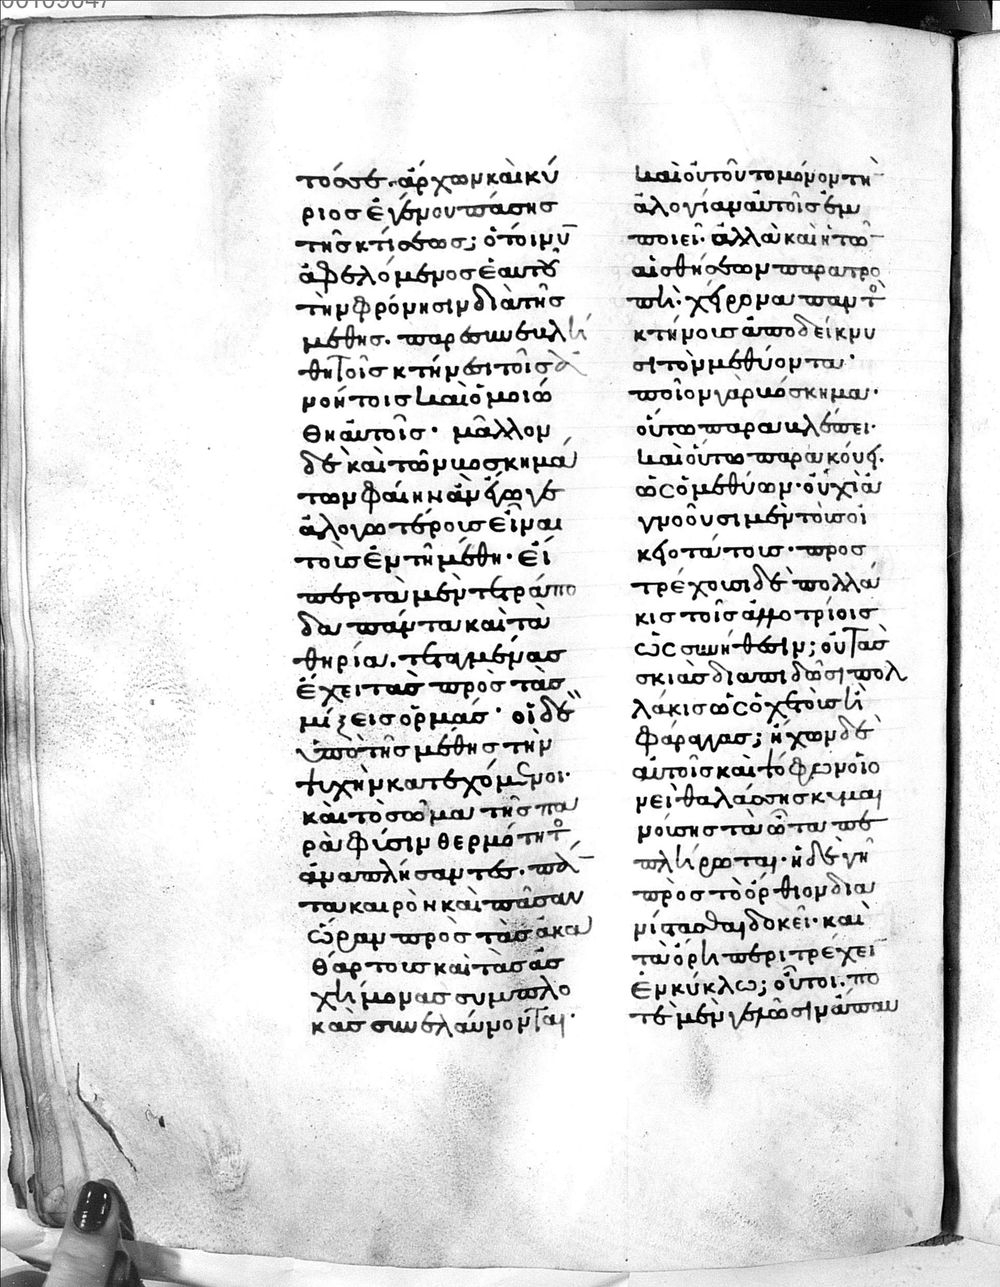 τόσσε. ἄρχων καὶ κύ
ριος ἐγένου πάσης
τῆς κτίσεως; ὁ τοίνυ̅
ἀφελόμενος ἑαυτοῦ
τὴν φρόνησιν διὰ τῆς
μέθης. παρασυνεβλή
θη τοῖς κτήνεσι τοῖς ἀ
νοήτοις καὶ ὁμοιώ
θη αὐτοῖς· μᾶλλον
δὲ καὶ τῶν βοσκημά
των φαίην ἂν ἔγωγε
ἀλογωτέροις εἶναι
τοὺς ἐν τῇ μέθῃ· εἴ
περ τὰ μὲν τετράπο
δα πάντα καὶ τὰ
θηρία. τεταγμένας
ἔχει τὰς πρὸς τὰς
μίξεις ὁρμάς· οἱ δὲ
ὑπὸ τῆς μέθης τὴν
ψυχὴν κατεχόμενοι·
καὶ τὸ σῶμα τῆς πα
ρὰ φύσιν θερμότητο
ἀναπλήσαντες. πά̅
τα καιρὸν καὶ πᾶσαν
ὥραν πρὸς τὰς ἀκα
θάρτους καὶ τὰς ἀσ
χήμονας συμπλο
κὰς συνελαύνονται·
καὶ οὐ τοῦτο μόνον τὴ̅
ἀλογίαν αὐτοῖς ἐμ
ποιεῖ· ἀλλὰ καὶ ἡ τῶ̅
αἰσθήσεων παρατρο
πὴ· χείρονα παντὸ
κτήνους ἀποδείκνυ
σι τὸν μεθύοντα·
ποῖον γὰρ βόσκημα·
οὕτω παραβλέπει·
καὶ οὕτω παρακούει.
ὡς ὁ μεθύων· οὐχὶ ἀ
γνοοῦσι μὲν τοὺς οἰ
κειοτάτους· προσ
τρέχουσι δὲ πολλά
κις τοῖς ἀλλοτρίοις
ὡς συνήθεσιν; οὐ τὰς
σκιὰς διαπιδῶσι πολ
λάκις ὡς ὀχετοὺς ἢ
φάραγγας; ἤχων δὲ
αὐτοῖς καὶ ψόφων οἱο
νεὶ θαλάσσης κυμαι
νούσης τὰ ὦτα πε
πλήρωται· ἡ δὲ γῆ
πρὸς τὸ ὄρθιον δια
νίστασθαι δοκεῖ· καὶ
τὰ ὄρη περιτρέχει
ἐν κύκλῳ; οὗτοι. πο
τὲ μὲν γελῶσιν ἄπαυ